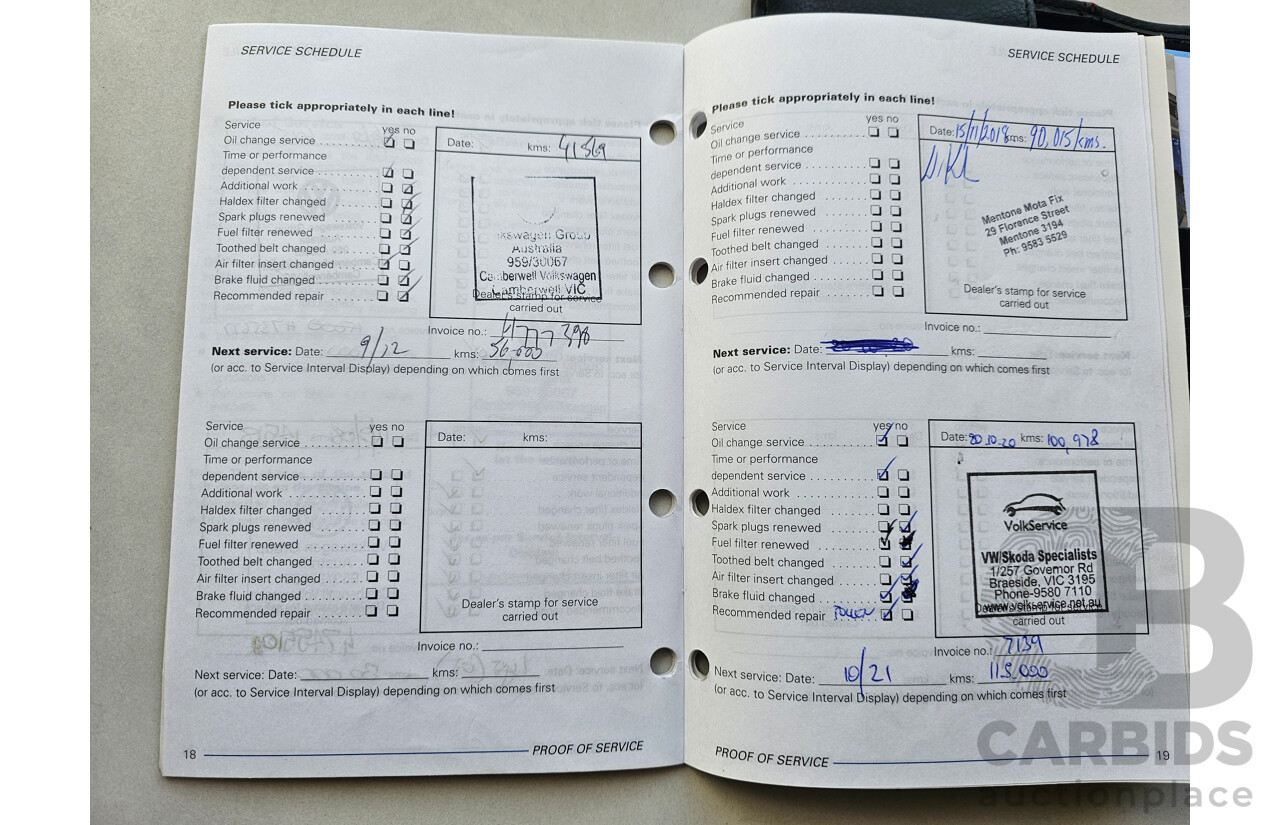 SERVICE SCHEDULE
Please tick appropriately in each line!
Service
yes no
Oil change service
Time or performance
dependent service
Additional work
Haldex filter changed
Spark plugs renewed
Fuel filter renewed
Toothed belt changed
Air filter insert changed
Brake fluid changed
Recommended repair
Date: kms: 41569
Volkswagen Group
Australia
959/30067
Camberwell Volkswagen
Camberwell VIC
Dealer's stamp for service
carried out
Invoice no.:
Next service: Date: 9/12 kms: 56,000
(or acc. to Service Interval Display) depending on which comes first
Service
yes no
Oil change service
Time or performance
dependent service
Additional work
Haldex filter changed
Spark plugs renewed
Fuel filter renewed
Toothed belt changed
Air filter insert changed
Brake fluid changed
Recommended repair
Date: kms:
Dealer's stamp for service
carried out
Invoice no.:
Next service: Date: kms:
(or acc. to Service Interval Display) depending on which comes first
18
PROOF OF SERVICE
SERVICE SCHEDULE
Please tick appropriately in each line!
Service
yes no
Oil change service
Time or performance
dependent service
Additional work
Haldex filter changed
Spark plugs renewed
Fuel filter renewed
Toothed belt changed
Air filter insert changed
Brake fluid changed
Recommended repair
Date: 15/11/2018 kms: 90,015/kms.
Mentone Mota Fix
29 Florence Street
Mentone 3194
Ph: 9583 5529
Dealer's stamp for service
carried out
Invoice no.:
Next service: Date: kms:
(or acc. to Service Interval Display) depending on which comes first
Service
yes no
Oil change service
Time or performance
dependent service
Additional work
Haldex filter changed
Spark plugs renewed
Fuel filter renewed
Toothed belt changed
Air filter insert changed
Brake fluid changed
Recommended repair
Date: 20.10.20 kms: 100,978
VolkService
VW/Skoda Specialists
1/257 Governor Rd
Braeside, VIC 3195
Phone-9580 7110
www.volkservice.net.au
carried out
Invoice no.: 7139
Next service: Date: 10/21 kms: 115,000
(or acc. to Service Interval Display) depending on which comes first
PROOF OF SERVICE
19
CARBIDS
auctionplace